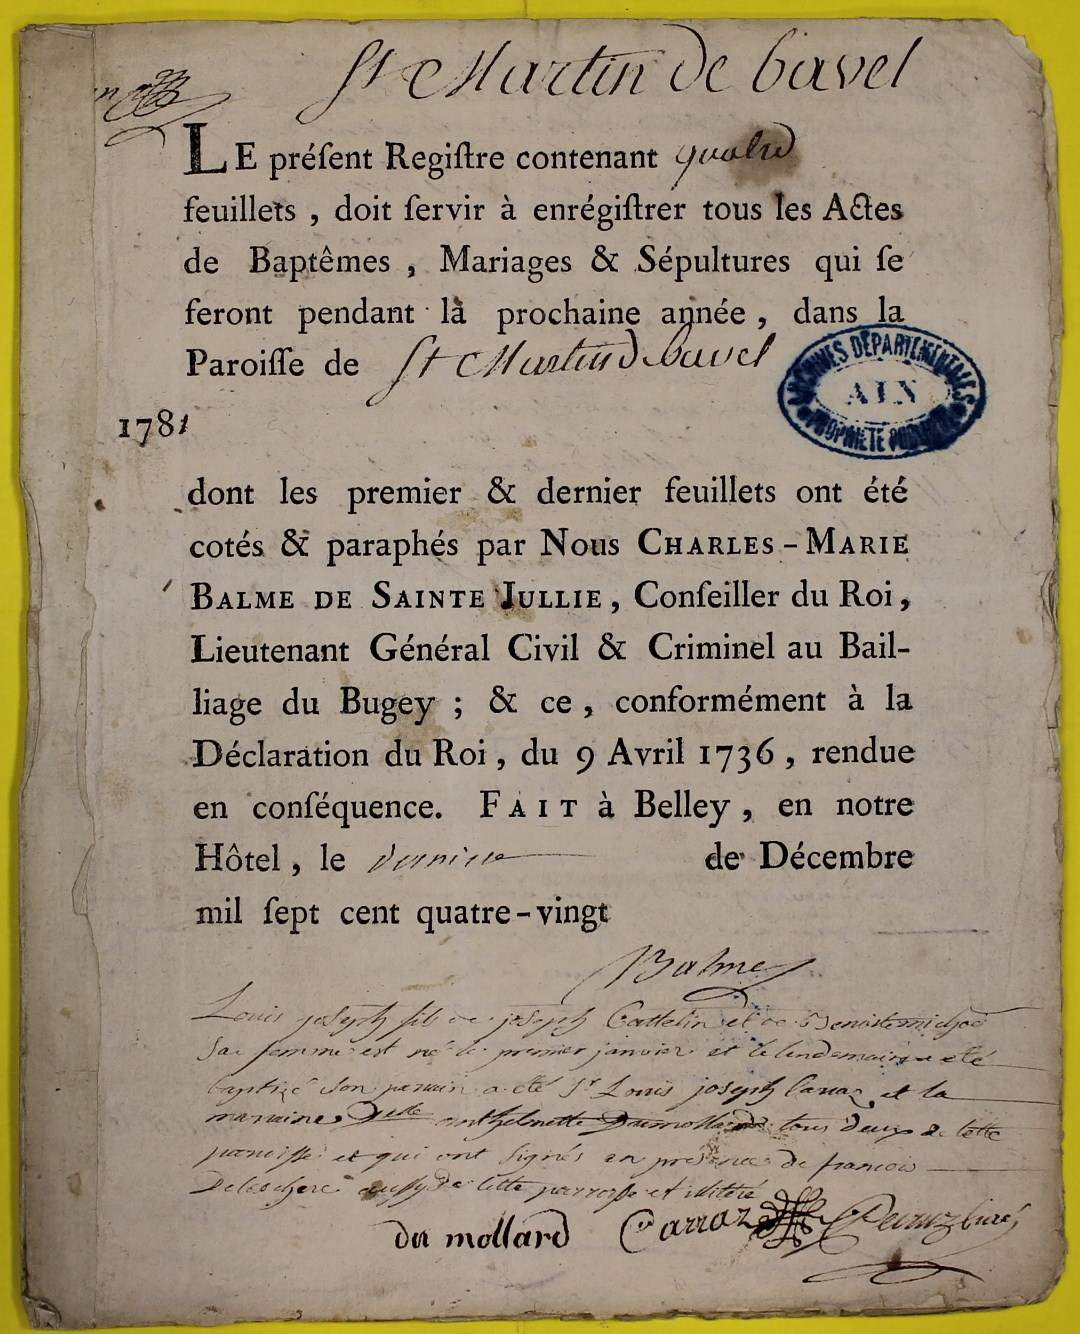 St Martin de bavel
LE préſent Regiſtre contenant quatre
feuillets , doit ſervir à enrégiſtrer tous les Actes
de Baptêmes , Mariages & Sépultures qui ſe
feront pendant là prochaine année , dans la
Paroiſſe de St Martin de bavel
ARCHIVES DÉPARTEMENTALES
AIN
PROPRIÉTÉ PUBLIQUE
1781
dont les premier & dernier feuillets ont été
cotés & paraphés par Nous CHARLES-MARIE
BALME DE SAINTE JULLIE , Conſeiller du Roi ,
Lieutenant Général Civil & Criminel au Bail-
liage du Bugey ; & ce , conformément à la
Déclaration du Roi , du 9 Avril 1736 , rendue
en conſéquence. FAIT à Belley , en notre
Hôtel , le dernier de Décembre
mil ſept cent quatre-vingt
Balme
Louis joseph fils de joseph Cattelin et de Benoiste
Sa femme est né le premier janvier et le lendemain a eté
baptizé Son parrain a eté Sr Louis joseph Carraz et la
marraine Delle anthelmette Dumollard tous deux de Cette
parroisse et qui ont signés en presence de francois
aussy de Cette parroisse et illiteré
du mollard Carraz